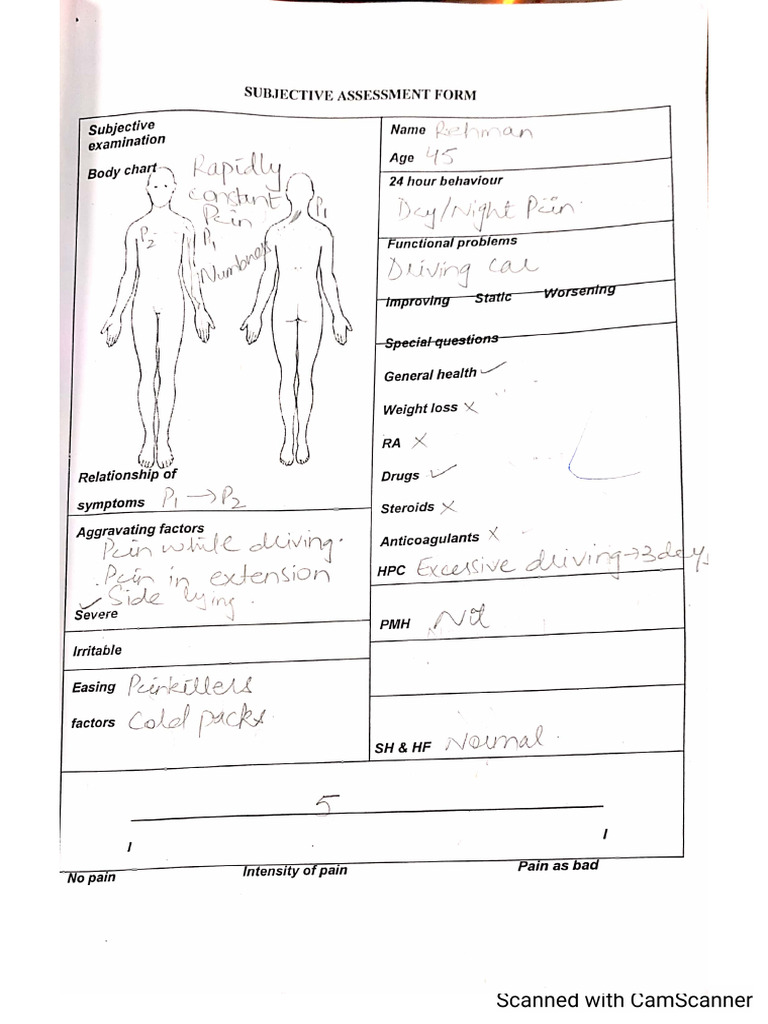 SUBJECTIVE ASSESSMENT FORM
Subjective
examination
Body chart
Rapidly
constant
Pain
P1
P2
P1
Numbness
Relationship of
symptoms P1 → P2
Aggravating factors
Pain while driving.
. Pain in extension
✓ Side lying.
Severe
Irritable
Easing Painkillers
factors Cold packs
Name Rehman
Age 45
24 hour behaviour
Day/Night Pain
Functional problems
Driving car
Improving Static Worsening
Special questions
General health ✓
Weight loss ×
RA ×
Drugs ✓
Steroids ×
Anticoagulants ×
HPC Excessive driving→3 days
PMH Nil
SH & HF Normal.
5
I I
No pain Intensity of pain Pain as bad
Scanned with CamScanner